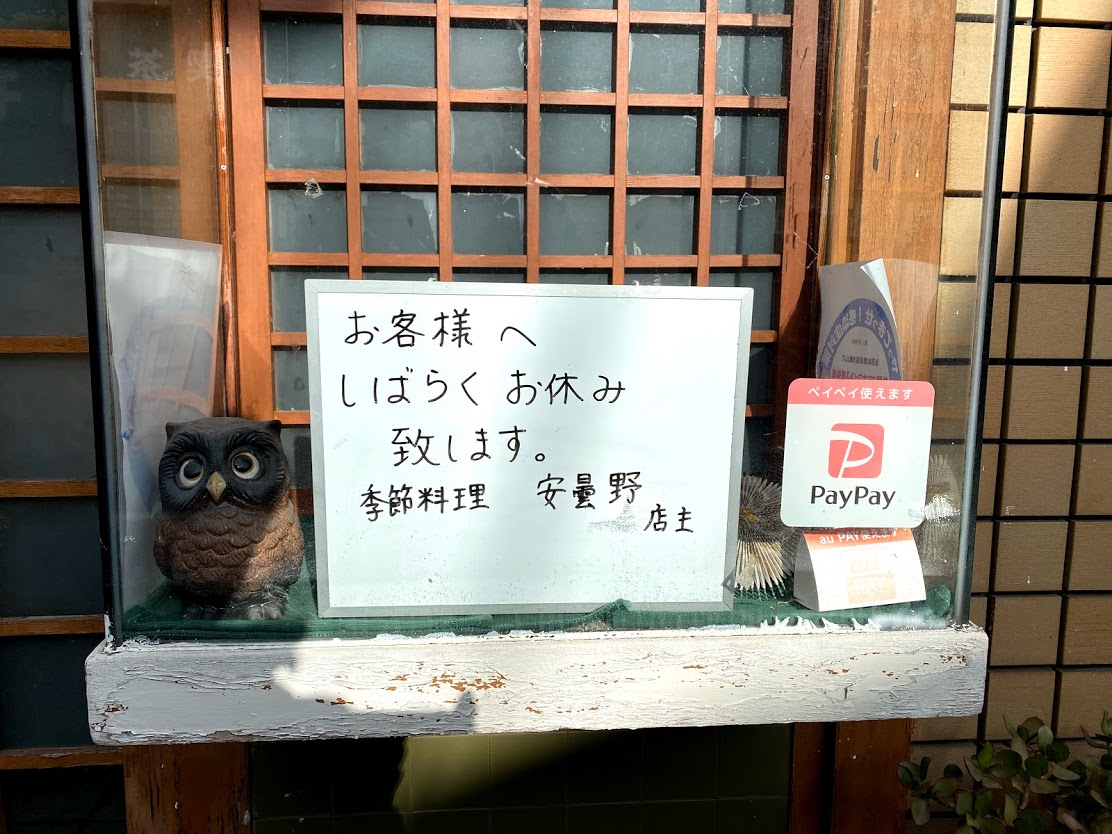 お客様へ
しばらくお休み
致します。
季節料理 安曇野
店主
ペイペイ使えます
PayPay
au PAY使えます